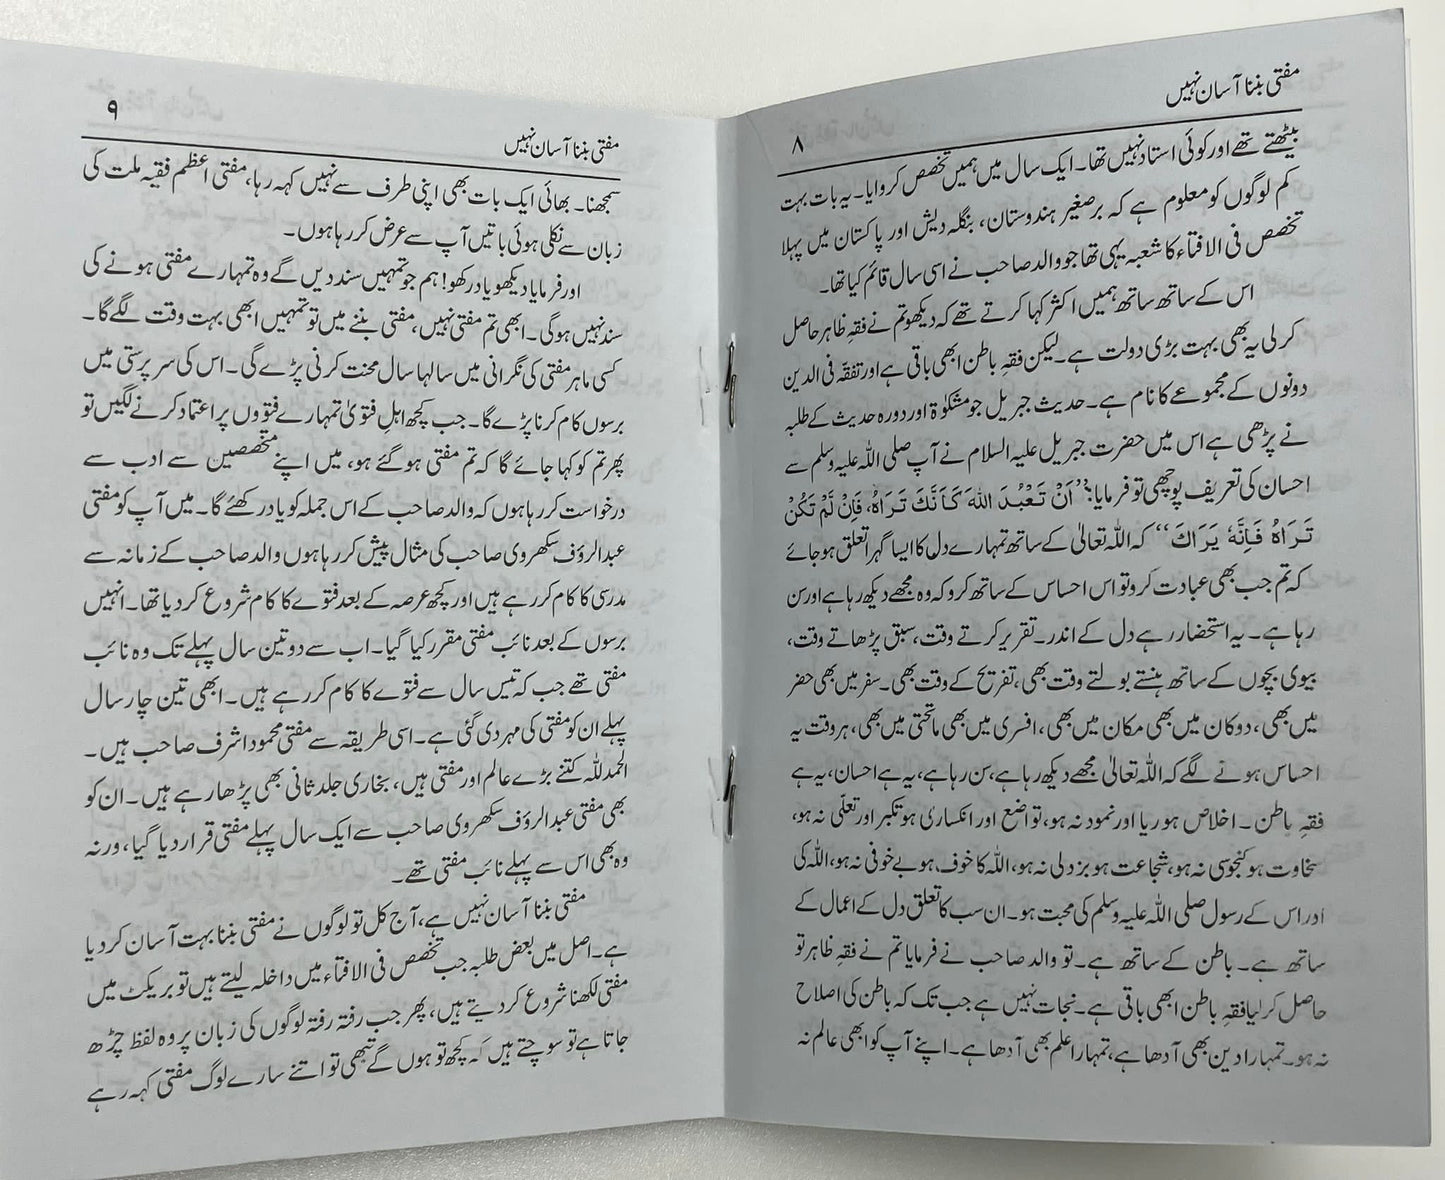 مفتی بننا آسان نہیں
۸
بیٹھتے تھے اور کوئی استاد نہیں تھا۔ ایک سال میں ہمیں تخصص کروایا۔ یہ بات بہت
کم لوگوں کو معلوم ہے کہ برصغیر ہندوستان، بنگلہ دیش اور پاکستان میں پہلا
تخصص فی الافتاء کا شعبہ یہی تھا جو والد صاحب نے اسی سال قائم کیا تھا۔
اس کے ساتھ ساتھ ہمیں اکثر کہا کرتے تھے کہ دیکھو تم نے فقہِ ظاہر حاصل
کرلی یہ بھی بہت بڑی دولت ہے۔ لیکن فقہِ باطن ابھی باقی ہے اور تفقّہ فی الدین
دونوں کے مجموعے کا نام ہے۔ حدیث جبریل جو مشکوٰۃ اور دورہ حدیث کے طلبہ
نے پڑھی ہے اس میں حضرت جبریل علیہ السلام نے آپ صلی اللہ علیہ وسلم سے
احسان کی تعریف پوچھی تو فرمایا: ’’اَنْ تَعْبُدَ اللّٰهَ كَاَنَّكَ تَرَاهُ، فَاِنْ لَّمْ تَكُنْ
تَرَاهُ فَاِنَّهٗ يَرَاكَ‘‘ کہ اللہ تعالیٰ کے ساتھ تمہارے دل کا ایسا گہرا تعلق ہوجائے
کہ تم جب بھی عبادت کرو تو اس احساس کے ساتھ کرو کہ وہ مجھے دیکھ رہا ہے اور سن
رہا ہے۔ یہ استحضار رہے دل کے اندر۔ تقریر کرتے وقت، سبق پڑھاتے وقت،
بیوی بچوں کے ساتھ ہنستے بولتے وقت بھی، تفریح کے وقت بھی۔ سفر میں بھی حضر
میں بھی، دوکان میں بھی مکان میں بھی، افسری میں بھی ماتحتی میں بھی، ہر وقت یہ
احساس ہونے لگے کہ اللہ تعالیٰ مجھے دیکھ رہا ہے، سن رہا ہے، یہ ہے احسان، یہ ہے
فقہِ باطن۔ اخلاص ہو ریا اور نمود نہ ہو، تواضع اور انکساری ہو تکبر اور تعلّی نہ ہو،
سخاوت ہو کنجوسی نہ ہو، شجاعت ہو بزدلی نہ ہو، اللہ کا خوف ہو بے خوفی نہ ہو، اللہ کی
اور اس کے رسول صلی اللہ علیہ وسلم کی محبت ہو۔ ان سب کا تعلق دل کے اعمال کے
ساتھ ہے۔ باطن کے ساتھ ہے۔ تو والد صاحب نے فرمایا تم نے فقہِ ظاہر تو
حاصل کرلیا فقہِ باطن ابھی باقی ہے۔ نجات نہیں ہے جب تک کہ باطن کی اصلاح
نہ ہو۔ تمہارا دین بھی آدھا ہے، تمہارا علم بھی آدھا ہے۔ اپنے آپ کو ابھی عالم نہ
مفتی بننا آسان نہیں
۹
سمجھنا۔ بھائی ایک بات بھی اپنی طرف سے نہیں کہہ رہا، مفتی اعظم فقیہ ملت کی
زبان سے نکلی ہوئی باتیں آپ سے عرض کر رہا ہوں۔
اور فرمایا دیکھو یاد رکھو! ہم جو تمہیں سند دیں گے وہ تمہارے مفتی ہونے کی
سند نہیں ہوگی۔ ابھی تم مفتی نہیں، مفتی بننے میں تو تمہیں ابھی بہت وقت لگے گا۔
کسی ماہر مفتی کی نگرانی میں سالہا سال محنت کرنی پڑے گی۔ اس کی سرپرستی میں
برسوں کام کرنا پڑے گا۔ جب کچھ اہلِ فتویٰ تمہارے فتووں پر اعتماد کرنے لگیں تو
پھر تم کو کہا جائے گا کہ تم مفتی ہو گئے ہو، میں اپنے متخصصین سے ادب سے
درخواست کر رہا ہوں کہ والد صاحب کے اس جملہ کو یاد رکھئے گا۔ میں آپ کو مفتی
عبدالرؤف سکھروی صاحب کی مثال پیش کر رہا ہوں والد صاحب کے زمانہ سے
مدرسی کا کام کر رہے ہیں اور کچھ عرصہ کے بعد فتوے کا کام شروع کر دیا تھا۔ انہیں
برسوں کے بعد نائب مفتی مقرر کیا گیا۔ اب سے دو تین سال پہلے تک وہ نائب
مفتی تھے جب کہ تیس سال سے فتوے کا کام کر رہے ہیں۔ ابھی تین چار سال
پہلے ان کو مفتی کی مہر دی گئی ہے۔ اسی طریقہ سے مفتی محمود اشرف صاحب ہیں۔
الحمدللہ کتنے بڑے عالم اور مفتی ہیں، بخاری جلد ثانی بھی پڑھا رہے ہیں۔ ان کو
بھی مفتی عبدالرؤف سکھروی صاحب سے ایک سال پہلے مفتی قرار دیا گیا، ورنہ
وہ بھی اس سے پہلے نائب مفتی تھے۔
مفتی بننا آسان نہیں ہے، آج کل تو لوگوں نے مفتی بننا بہت آسان کر دیا
ہے۔ اصل میں بعض طلبہ جب تخصص فی الافتاء میں داخلہ لیتے ہیں تو بریکٹ میں
مفتی لکھنا شروع کر دیتے ہیں، پھر جب رفتہ رفتہ لوگوں کی زبان پر وہ لفظ چڑھ
جاتا ہے تو سوچتے ہیں کہ کچھ تو ہوں گے تبھی تو اتنے سارے لوگ مفتی کہہ رہے